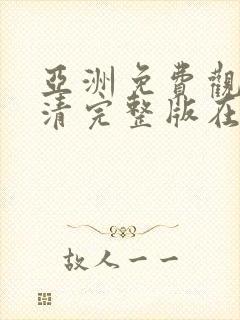 亞洲免費觀
清完整版在
故人一一